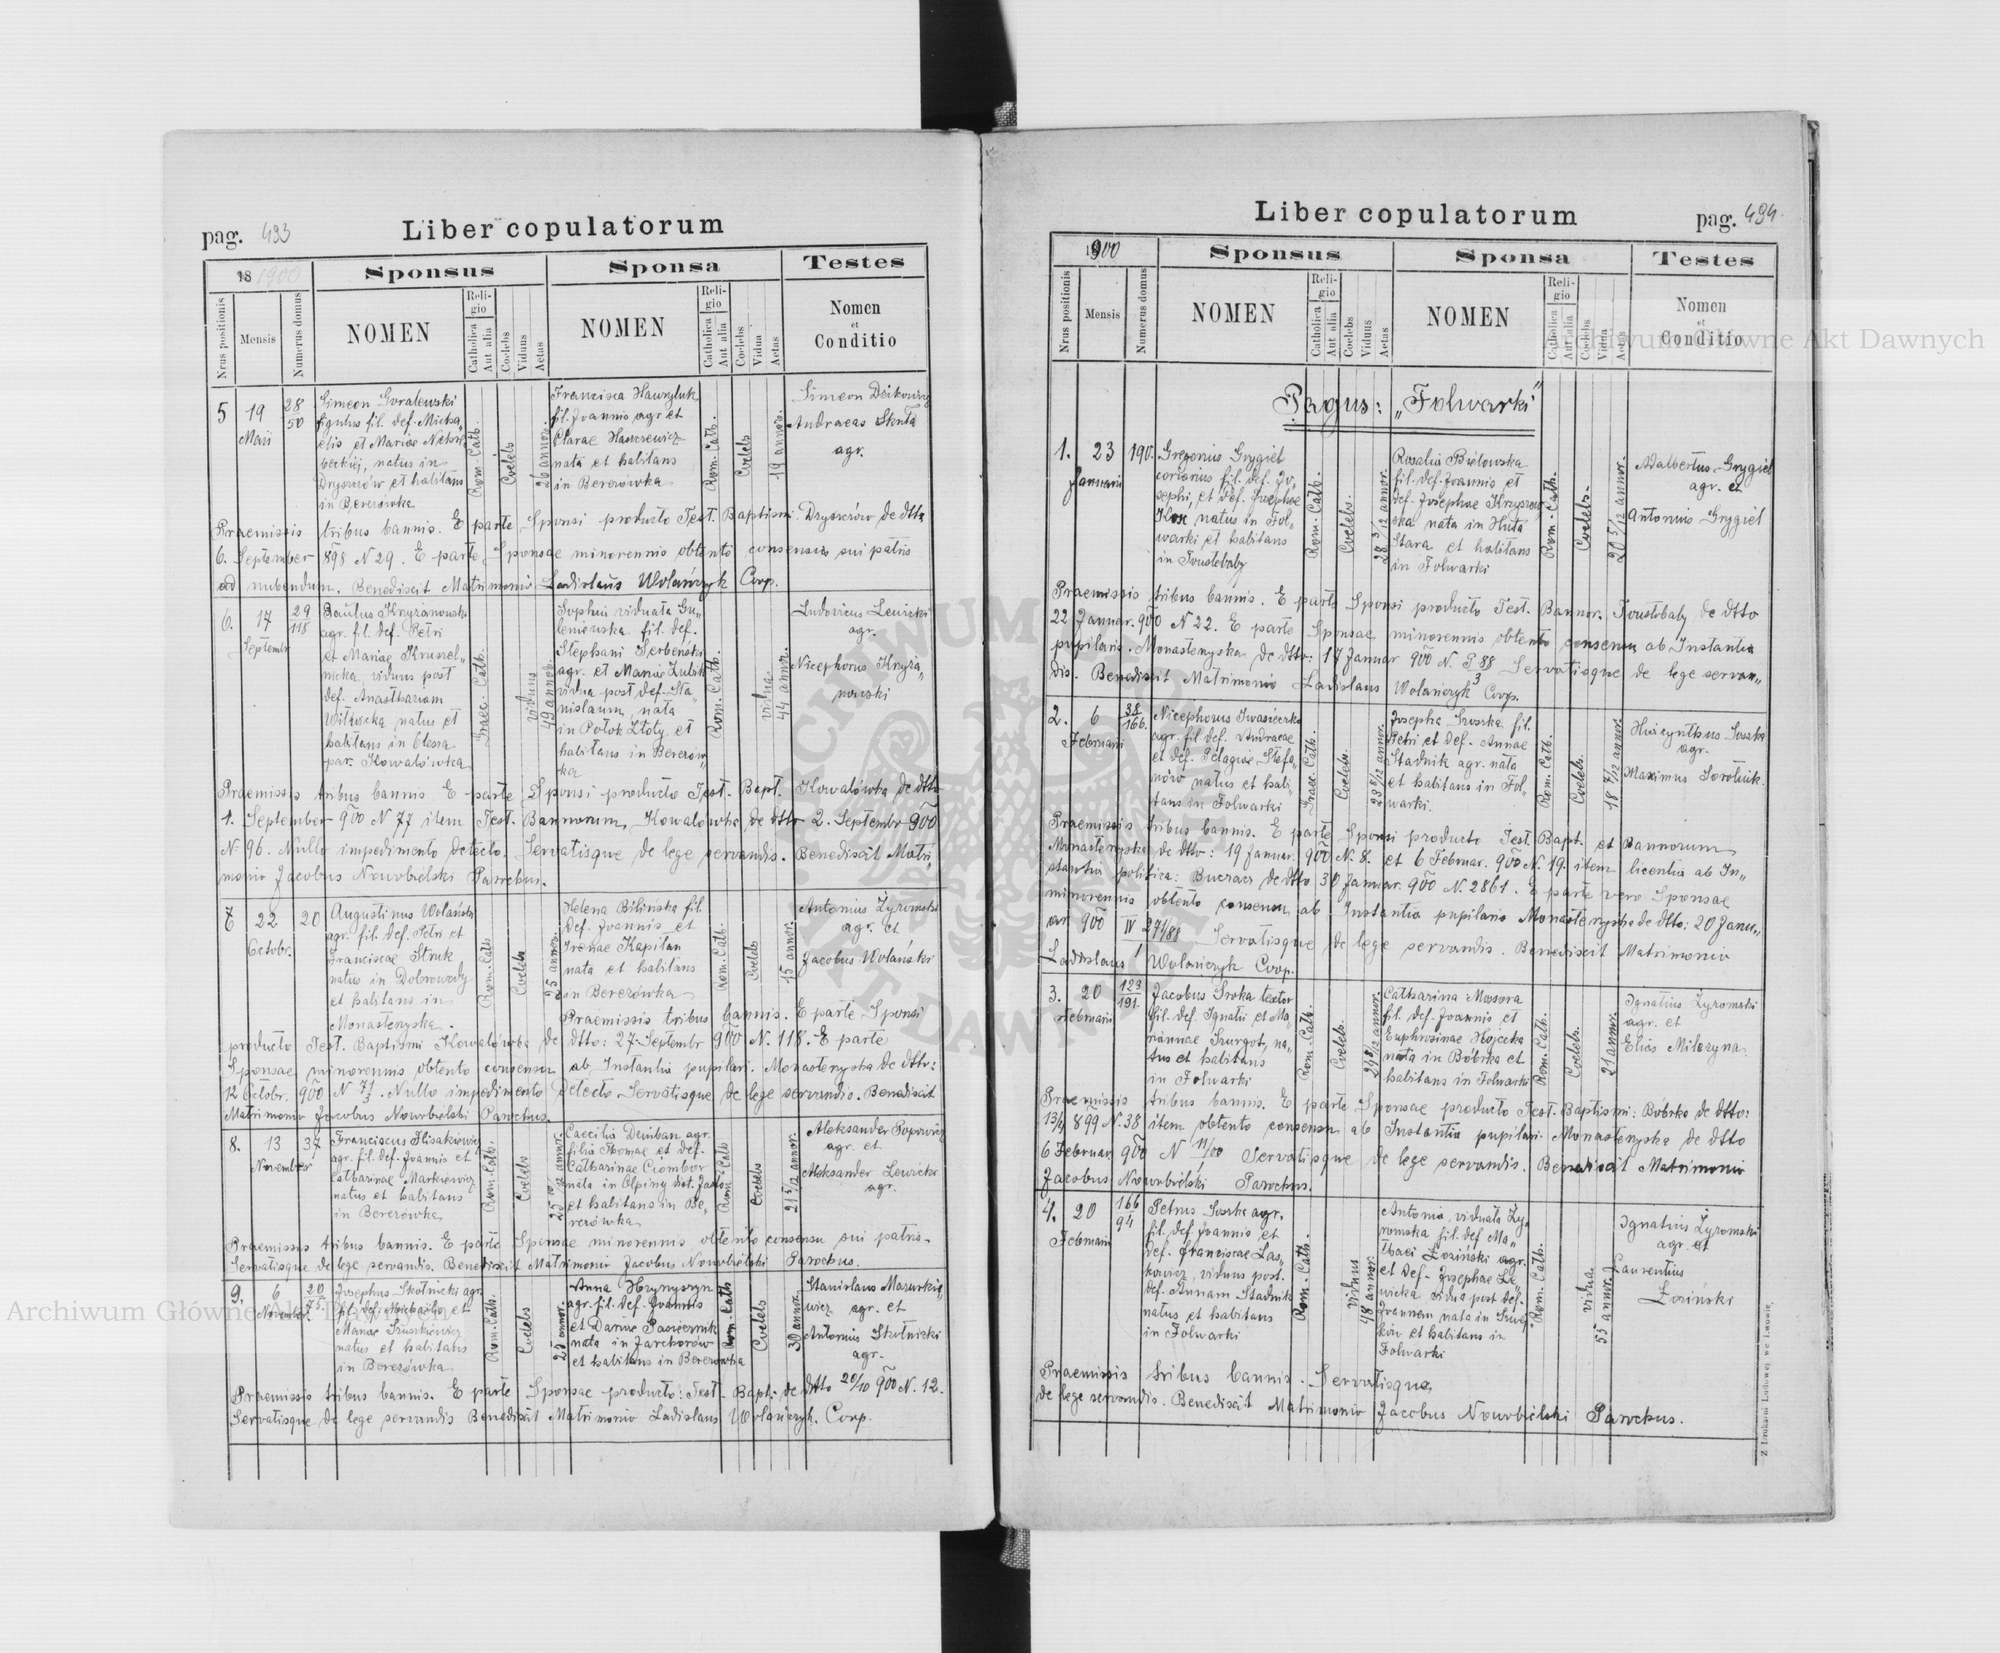 pag. 493
Liber copulatorum
18 1900
Sponsus
Sponsa
Testes
Nrus positionis
Mensis
Numerus domus
NOMEN
Religio
Catholica
Aut alia
Coelebs
Viduus
Aetas
NOMEN
Religio
Catholica
Aut alia
Coelebs
Vidua
Aetas
Nomen
et
Conditio
5
19
Maii
28
50
Simeon Goralewski
figulus fil. def. Micha„
elis et Mariae
natus in
Dryszczów et habitans
in Berezówka
Rom. Cath.
Coelebs
26 annor.
Francisca Hawryluk
fil. Joannis agr. et
Clarae
nata et habitans
in Berezówka
Rom. Cath.
Coelebs
19 annor.
Simeon
Andraeas Skuta
agr.
Praemissis tribus bannis. E parte Sponsi producto Test. Baptismi. Dryszczów de dtto
6. September 898 N 29. E parte Sponsae minorennis obtento consensu sui patris
ad nubendum. Benedixit Matrimonio Ladislaus Wolańczyk Coop.
6.
17
Septembr
29
118
Paulus Kryżanowski
agr. fil. def. Petri
et Mariae Krusel„
nicka viduus post
def. Anasthasiam
Witwicka natus et
habitans in Olesza
par. Kowalówka
Graec. Cath.
viduus
49 annor.
Sophia viduata Gu„
leniewska fil. def.
Stephani Serbeński
agr. et Maria Zubik
vidua post def. Sta„
nislaum, nata
in Potok Złoty et
habitans in Berezów„
ka
Rom. Cath.
vidua
44 annor.
Ludovicus Lewicki
agr.
Nicephorus Kryża„
nowski
Praemissis tribus bannis E parte Sponsi producto Test. Bapt. Kowalówka de dtto
1. September 900 N 77 item Test. Bannorum Kowalówka de dtto 2. Septembr 900
N 96. Nullo impedimento detecto. Servatisque de lege servandis. Benedixit Matri„
monio Jacobus Nowobielski Parochus.
7
22
Octobr.
20
Augustinus Wolański
agr. fil. def. Petri et
Franciscae Struk
natus in Dobrowody
et habitans in
Monasterzyska.
Rom. Cath
Coelebs
25 annor.
Helena Bilińska fil.
def. Joannis et
Irenae Kapitan
nata et habitans
in Berezówka
Rom. Cath.
Coelebs
15 annor.
Antonius Żyromski
agr. et
Jacobus Wolański
Praemissis tribus bannis. E parte Sponsi
producto Test. Baptismi Kowalówka de dtto: 27 Septembr 900 N. 118. E parte
Sponsae minorennis obtento consensu ab Instantia pupilari. Monasterzyska de dtto:
12 Octobr. 900 N 71/3. Nullo impedimento detecto. Servatisque de lege servandis. Benedixit
Matrimonio Jacobus Nowobielski Parochus.
8.
13
November
37
Franciscus Ilisakiewicz
agr. fil. def. Joannis et
Catharinae Markiewicz
natus et habitans
in Berezówka
Rom. Cath.
Coelebs
25 10/12 annor.
Caecilia Demban agr.
filia Thomae et def.
Catharinae Ciombor
nata in Olpiny dist. Jasło
et habitans in Be„
rezówka
Rom. Cath
Coelebs
21 5/12 annor.
Aleksander Popowicz
agr. et
Aleksander Lewicki
agr.
Praemissis tribus bannis. E parte Sponsae minorennis obtento consensu sui patris.
Servatisque de lege servandis. Benedixit Matrimonio Jacobus Nowobielski Parochus.
9.
6
November.
20
75.
Josephus Skotnicki agr.
fil. def. Michaelis et
Mariae Truszkiewicz
natus et habitans
in Berezówka
Rom. Cath.
Coelebs
23 annor.
Anna Hrynyszyn
agr. fil. def. Joannis
et Dariae Pasiecznik
nata in Zarchorów
et habitans in Berezówka
Rom. Cath
Coelebs
30 annor.
Stanislaus Mazurkie„
wicz agr. et
Antonius Skotnicki
agr.
Praemissis tribus bannis. E parte Sponsae producto: Test. Bapt. de dtto 20/10 900 N. 12.
Servatisque de lege servandis Benedixit Matrimonio Ladislaus Wolańczyk. Coop.
Liber copulatorum
pag. 494.
1900
Sponsus
Sponsa
Testes
Nrus positionis
Mensis
Numerus domus
NOMEN
Religio
Catholica
Aut alia
Coelebs
Viduus
Aetas
NOMEN
Religio
Catholica
Aut alia
Coelebs
Vidua
Aetas
Nomen
et
Conditio
Pagus: „Folwarki"
1.
23
Januarii
190.
Gregorius Grygiel
coriarius fil. def. Jo„
sephi, et def. Josephae
Kos, natus in Fol„
warki et habitans
in Toustobaby
Rom. Cath.
Coelebs.
28 3/12 annor.
Rosalia Bielowska
fil. def. Joannis et
def. Josephae Kryszow„
ska nata in Huta
Stara et habitans
in Folwarki
Rom. Cath.
Coelebs.
20 5/12 annor.
Adalbertus Grygiel
agr. et
Antonius Grygiel
Praemissis tribus bannis. E parte Sponsi producto Test. Bannor. Toustobaby de dtto
22 Januar. 900 N 22. E parte Sponsae minorennis obtento consensu ab Instantia
pupilaris. Monasterzyska de dtto: 17 Januar 900 N. P 88/3 Servatisque de lege servan„
dis. Benedixit Matrimonio Ladislaus Wolańczyk Coop.
2.
6
Februarii
38
166.
Nicephorus Iwasieczko
agr. fil. def. Andraeae
et def. Pelagiae Stefa„
nów natus et habi„
tans in Folwarki
Graec. Cath.
Coelebs.
28 8/12 annor.
Josepha Soroka fil.
Petri et def. Annae
Stadnik agr. nata
et habitans in Fol„
warki.
Rom. Cath.
Coelebs.
18 7/12 annor.
Hiacynthus Soroka
agr.
Maximus Sorotiuk.
Praemissis tribus bannis. E parte Sponsi producto Test. Bapt. et Bannorum
Monasterzyska de dtto: 19 Januar. 900 N. 8. et 6 Februar. 900 N. 19. item licentia ab In„
stantia politica: Buczacz de dtto 30 Januar. 900 N. 2861. E parte vero Sponsae
minorennis obtento consensu ab Instantia pupilaris Monasterzyska de dtto: 20 Janu„
ar 900 IV 241/88/1 Servatisque de lege servandis. Benedixit Matrimonio
Ladislaus Wolańczyk Coop.
3.
20
Februarii
123
191.
Jacobus Sroka textor
fil. def. Ignatii et Ma„
riannae Szurgot, na„
tus et habitans
in Folwarki
Rom. Cath.
Coelebs.
24 8/12 annor.
Catharina Mazora
fil. def. Joannis et
Euphrosinae Hojecka
nata in Bóbrka et
habitans in Folwarki
Rom. Cath.
Coelebs.
21 annor.
Ignatius Żyromski
agr. et
Elias
Praemissis tribus bannis. E parte Sponsae producto Test. Baptismi: Bóbrka de dtto:
13/4 899 N. 38 item obtento consensu ab Instantia pupilari. Monasterzyska de dtto
6 Februar. 900 N 11/00/1 Servatisque de lege servandis. Benedixit Matrimonio
Jacobus Nowobielski Parochus.
4.
20
Februarii
166
94
Petrus Soroka agr.
fil. def. Joannis et
def. Franciscae Las„
kowicz, viduus post.
def. Annam Stadnik
natus et habitans
in Folwarki
Rom. Cath.
viduus
48 annor.
Antonia, viduata Ży„
romska fil. def. Ma„
thaei Łoziński agr.
et def. Josephae Le„
wicka vidua post def.
Joannem nata in
et habitans in
Folwarki
Rom. Cath.
vidua
55 annor.
Ignatius Żyromski
agr. et
Laurentius
Łoziński
Praemissis tribus bannis. Servatisque
de lege servandis. Benedixit Matrimonio Jacobus Nowobielski Parochus.
Z Drukarni Ludowej we Lwowie.
Archiwum Główne Akt Dawnych
Archiwum Główne Akt Dawnych
ARCHIWUM GŁÓWNE AKT DAWNYCH